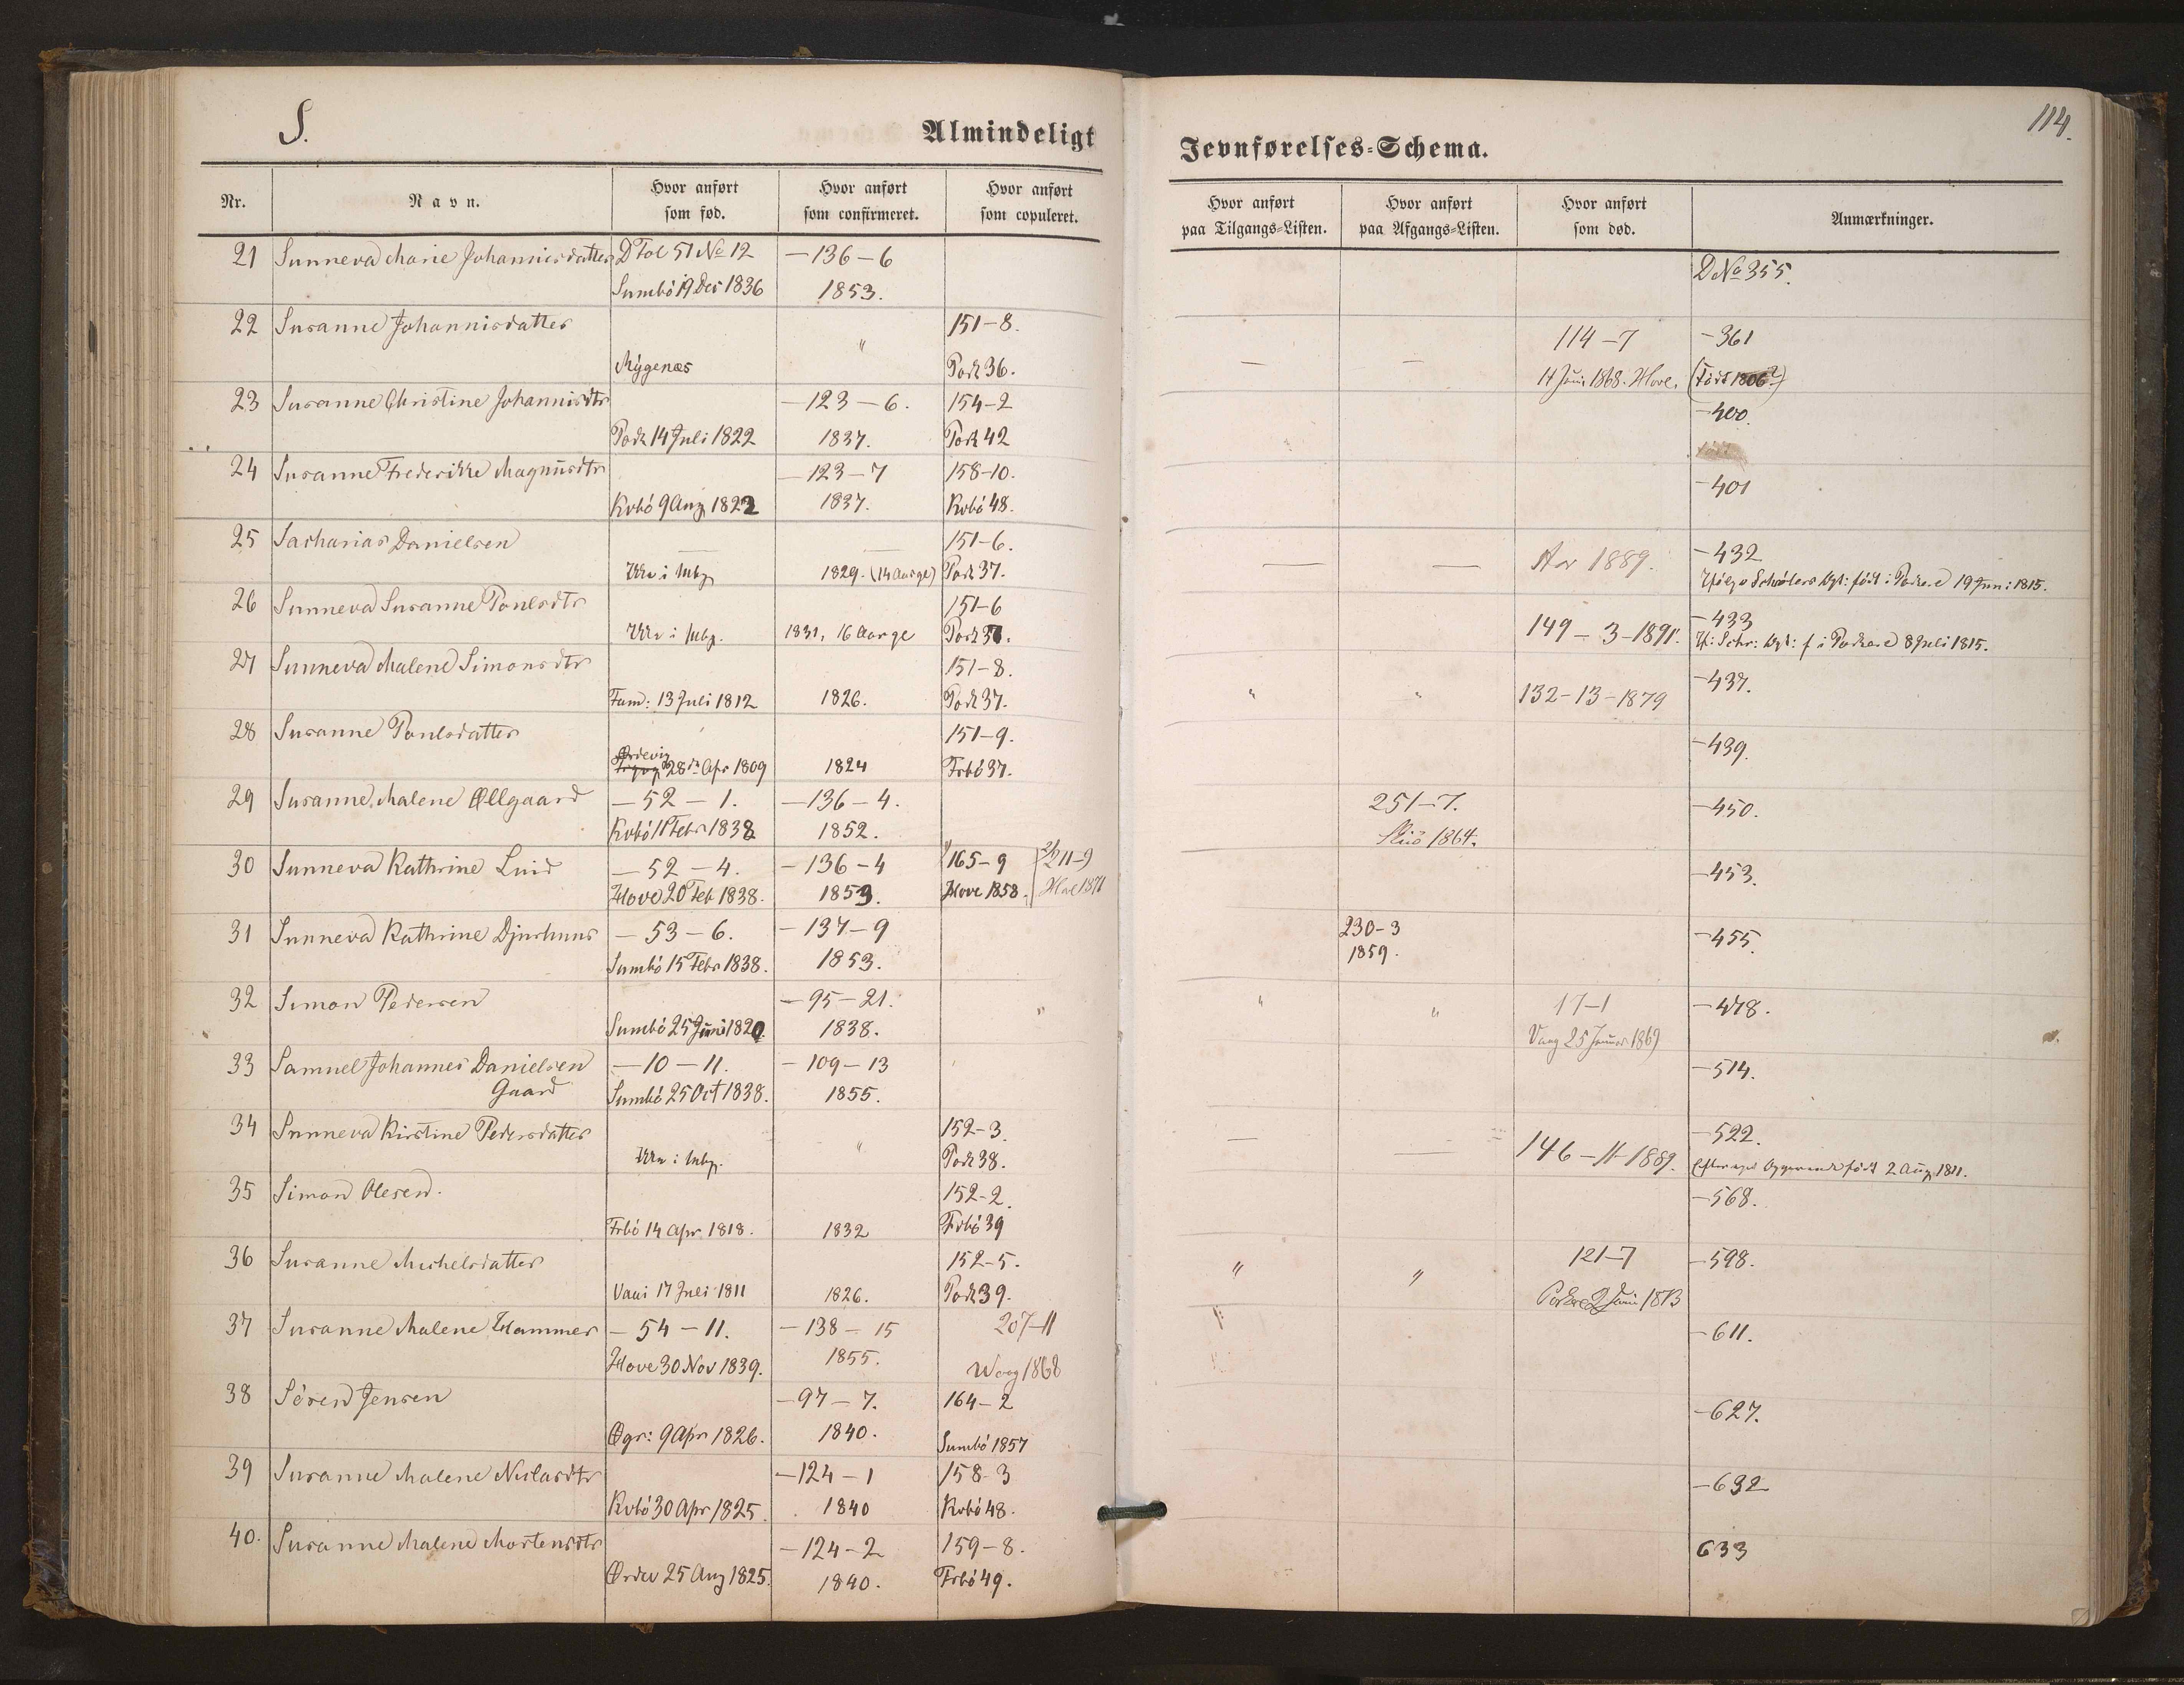 S.
Almindeligt
Jevnførelses-Schema.
114.
Nr.
Navn.
Hvor anført som fød.
Hvor anført som confirmeret.
Hvor anført som copuleret.
Hvor anført paa Tilgangs-Listen.
Hvor anført paa Afgangs-Listen.
Hvor anført som død.
Anmærkninger.
21 Sunneva Marie Johannisdatter D Fol 51 No 12 —136—6 D No 355.
Sumbö 19 Dec 1836 1853.
22 Susanne Johannisdatter 151—8. 114—7 —361
Mygenæs " Pork 36. — — 1868. Hove. (Födt 1806?)
23 Susanne Christine Johannisdtr —123—6. 154—2 —400.
Pork 14 Juli 1822 1837. Pork 42
24 Susanne Frederikke Magnusdtr —123—7 158—10. —401
Kvbö 9 Aug 1822 1837. Kvbö 48.
25 Sacharias Danielsen — — 151—6. — — 1889. —432
1829. (14 Aar gl) Pork 37. födt i Porkere 19 Juni 1815.
26 Sunneva Susanne Poulsdtr 151—6 149—3—1891. —433
1831, 16 Aar gl f i Porkere 8 Juli 1815.
27 Sunneva Malene Simonsdtr 151—8. " " 132—13—1879 —437.
Fam: 13 Juli 1812 1826. Pork 37.
28 Susanne Poulsdatter 151—9. —439.
Ördevig 28de Apr 1809 1824 Frbö 37.
29 Susanne Malene Øllgaard —52—1. —136—4. 251—7. —450.
Kvbö 11 Febr 1838 1852. 1864.
30 Sunneva Kathrine Luid —52—4. —136—4 165—9 211—9 —453.
Hove 20 Feb 1838. 1853. Hove 1858.
31 Sunneva Kathrine Djurhuus —53—6. —137—9 230—3 —455.
Sumbö 15 Febr 1838. 1853. 1859.
32 Simon Pedersen —95—21. " " " 17—1 —478.
Sumbö 25 Juni 1820. 1838. Vaag 25 Januar 1869
33 Samuel Johannes Danielsen —10—11. —109—13 —514.
Gaard Sumbö 25 Oct 1838. 1855.
34 Sunneva Kirstine Pedersdatter " 152—3. — — 146—11—1889. —522.
Pork 38. födt 2 Aug 1811.
35 Simon Olesen. 152—2. —568.
Frbö 14 Apr. 1818. 1832 Frbö 39
36 Susanne Michelsdatter 152—5. " " 121—7 —598.
17 Juli 1811 1826. Pork 39. Porkere 2 Juni 1873
37 Susanne Malene Hammer —54—11. —138—15 207—11 —611.
Hove 30 Nov 1839. 1855. Waag 1868
38 Sören Jensen —97—7. 164—2 —627.
Øgr: 9 Apr 1826. 1840. Sumbö 1857
39 Susanne Malene Niclasdtr —124—1 158—3 —632
Kvbö 30 Apr 1825. 1840 Kvbö 48.
40. Susanne Malene Mortensdtr —124—2 159—8. 633
Ørdev 25 Aug 1825. 1840. Frbö 49.